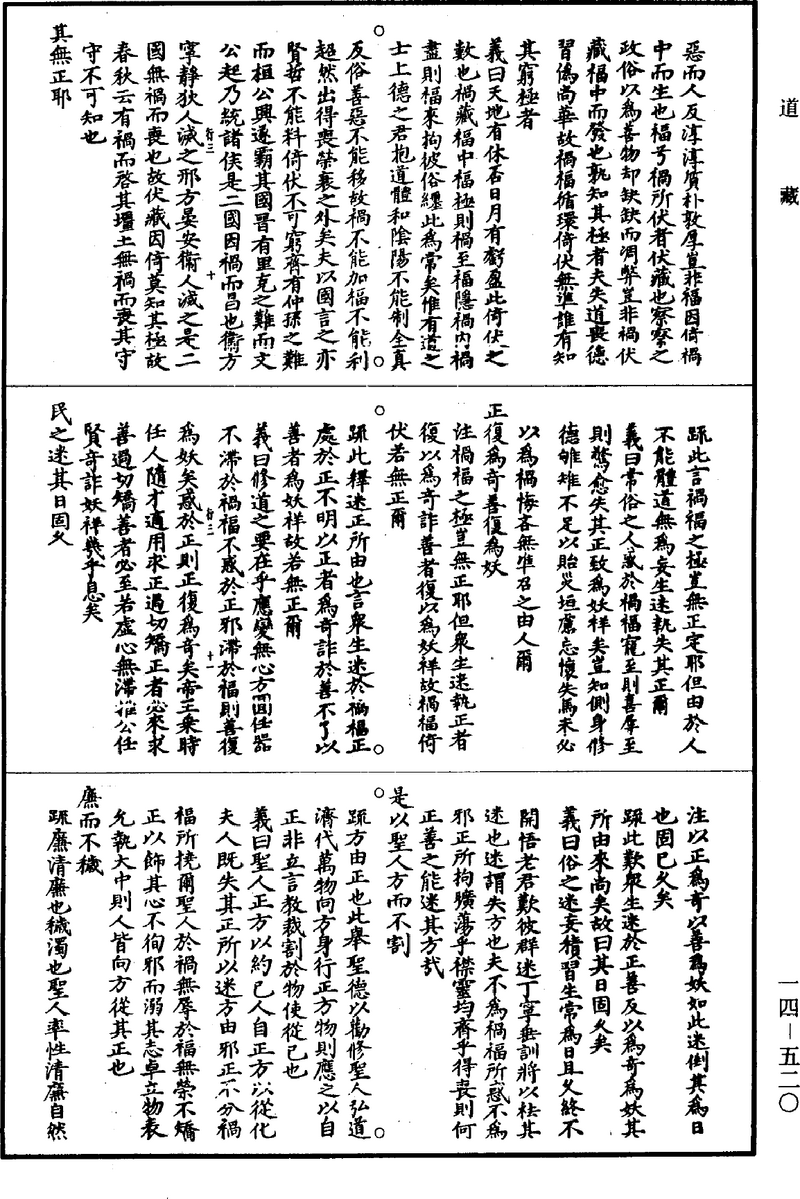 道藏
惡而人反淳淳質朴敦厚豈非福因倚禍
中而生也福兮禍所伏者伏藏也察察之
政俗以為善物却缺缺而凋弊豈非禍伏
藏福中而發也孰知其極者夫失道喪德
習偽尚華故禍福循環倚伏無準誰有知
其窮極者
義曰天地有休否日月有虧盈此倚伏之
數也禍藏福中福極則禍至福隱禍內禍
盡則福來拘彼俗纏此為常矣惟有道之
士上德之君抱道體和陰陽不能制全真
反俗善惡不能移故禍不能加福不能利
超然出得喪榮衰之外矣夫以國言之亦
賢哲不能料倚伏不可窮齊有仲孫之難
而桓公興遂霸其國晉有里克之難而文
公起乃統諸侯是二國因禍而昌也衞方
寧靜狄人滅之邢方晏安衞人滅之是二
國無禍而喪也故伏藏因倚莫知其極故
春秋云有禍而啓其壃土無禍而喪其守
守不可知也
其無正耶
疏此言禍福之極豈無正定耶但由於人
不能體道無為妄生迷執失其正爾
義曰常俗之人惑於禍福寵至則喜辱至
則驚愈失其正致為妖祥矣豈知側身修
德雊雉不足以貽災垣慮忘懷失馬未必
以為禍悔吝無準召之由人爾
正復為奇善復為妖
注禍福之極豈無正耶但衆生迷執正者
復以為奇詐善者復以為妖祥故禍福倚
伏若無正爾
疏此釋迷正所由也言衆生迷於禍福正
處於正不明以正者為奇詐於善不了以
善者為妖祥故若無正爾
義曰修道之要在乎應變無心方圓任器
不滯於禍福不惑於正邪滯於福則善復
為妖矣惑於正則正復為奇矣帝王乘時
任人隨才適用求正過切矯正者必來求
善過切矯善者必至若虛心無滯推公任
賢奇詐妖祥幾乎息矣
民之迷其日固久
注以正為奇以善為妖如此迷倒其為日
也固已久矣
疏此歎衆生迷於正善反以為奇為妖其
所由來尚矣故曰其日固久矣
義曰俗之迷妄積習生常為日且久終不
開悟老君歎彼群迷丁寧垂訓將以祛其
迷也迷謂失方也夫不為禍福所惑不為
邪正所拘曠蕩乎襟靈均齊乎得喪則何
正善之能迷其方哉
是以聖人方而不割
疏方由正也此舉聖德以勸修聖人弘道
濟代萬物向方身行正方物則應之以自
正非立言教裁割於物使從己也
義曰聖人正方以約己人自正方以從化
夫人既失其正所以迷方由邪正不分禍
福所撓爾聖人於禍無辱於福無榮不矯
正以飾其心不徇邪而溺其志卓立物表
允執大中則人皆向方從其正也
廉而不穢
疏廉清廉也穢濁也聖人率性清廉自然
一四-五二〇